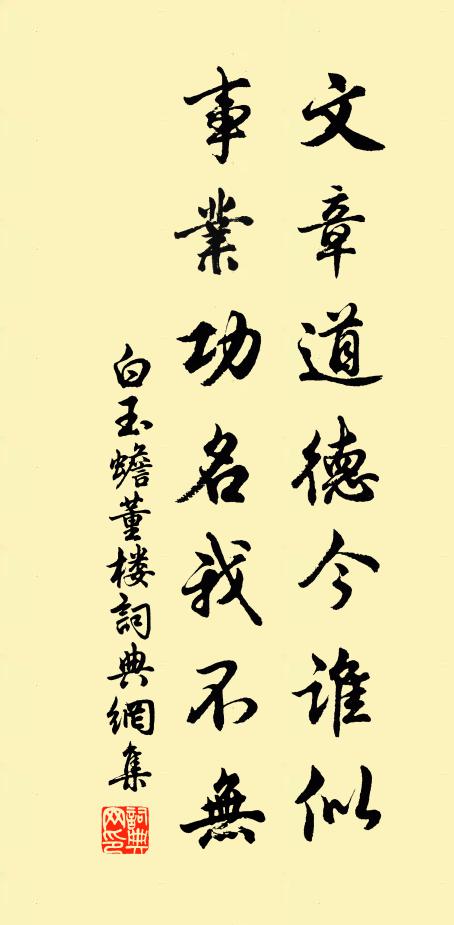 文章道德今谁似
事業功名我不無
白玉蟾董楼詞典網集
詞典网印